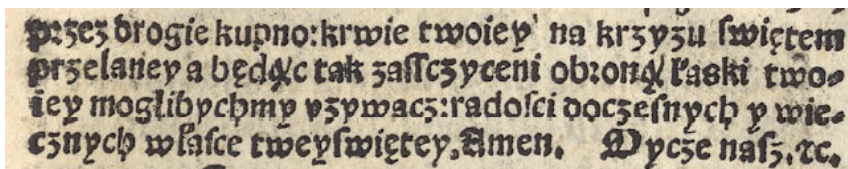 przez drogie kupno:krwie twoiey na krzyzu ſwiętem
przelaney a będąc tak zaſſczyceni obroną łaski two-
iey moglibychmy vzywacz:radoſci doczeſnych y wie-
cznych właſce tweyſwiętey. Amen. Oycze naſz. ꝛc.